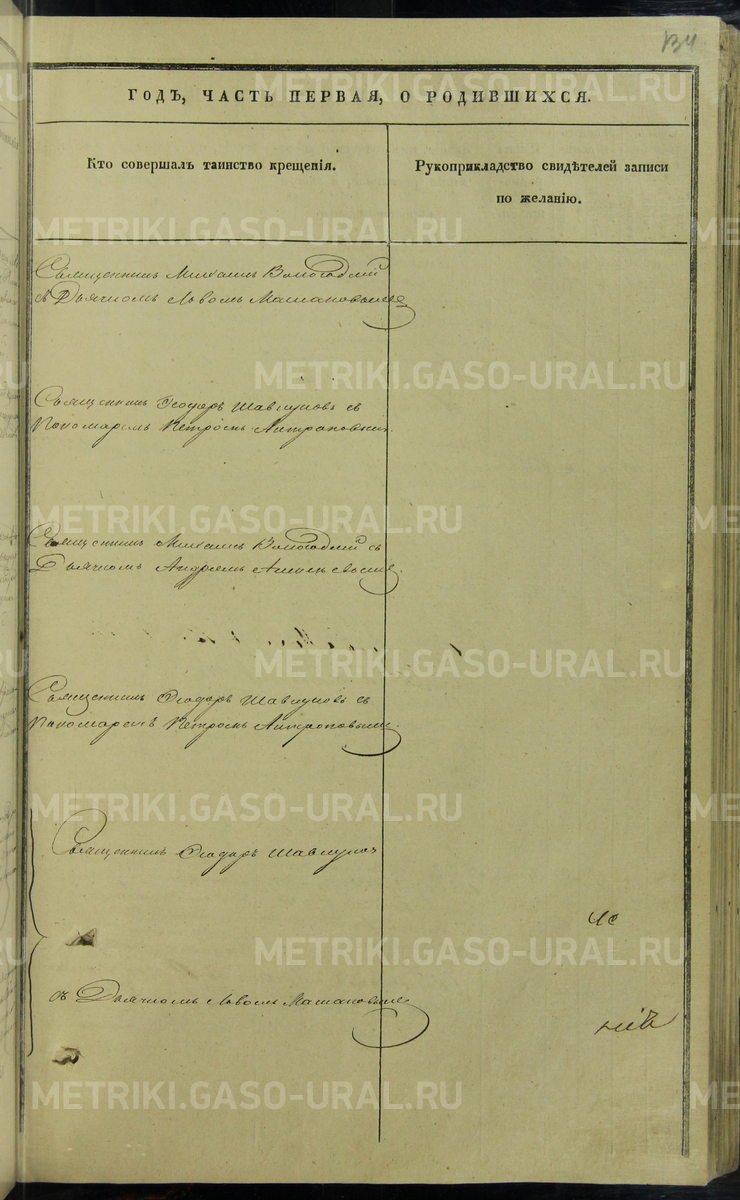 134
ГОДЪ, ЧАСТЬ ПЕРВАЯ, О РОДИВШИХСЯ.
Кто совершалъ таинство крещенія.
Рукоприкладство свидѣтелей записи
по желанію.
Священникъ Михаилъ Вологодкій
съ Дьячкомъ Львомъ
Священникъ Ѳеодоръ Шавкуновъ съ
Пономаремъ Петромъ Антроповымъ.
Священникъ Михаилъ Вологодкій съ
Дьячкомъ Андреемъ
Священникъ Ѳеодоръ Шавкуновъ съ
Пономаремъ Петромъ Антроповымъ.
Священникъ Ѳеодоръ
съ Дьячкомъ Львомъ
METRIKI.GASO-URAL.RU